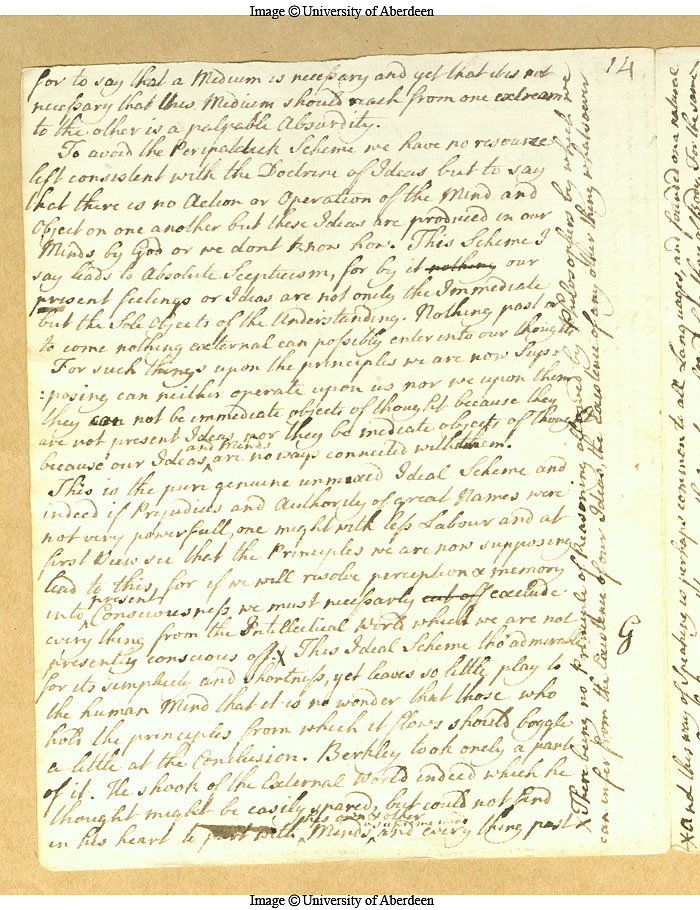 Image © University of Aberdeen
14
for to say that a Medium is necessary and yet that it is not
necessary that this Medium should reach from one extream
to the other is a palpable Absurdity.
To avoid the Peripatetick Scheme we have no resource
left consistent with the Doctrine of Ideas but to say
that there is no Action or Operation of the Mind and
Object on one another but these Ideas are produced in our
Minds by God or we dont know how. This Scheme I
say leads to Absolute Scepticism, for by it nothing our
present feelings or Ideas are not onely the Immediate
but the Sole Objects of the Understanding. Nothing past or
to come nothing external can possibly enter into our thoughts
For such things upon the principles we are now Supp
:posing can neither operate upon us nor we upon them
they can not be immediate objects of thought because they
are not present Ideas, nor they be mediate objects of thought
because our Ideas and Minds are no ways connected with them.
This is the pure genuine unmixed Ideal Scheme and
indeed if Prejudices and Authority of great Names were
not very powerfull, one might with less Labour and at
first View see that the Principles we are now supposing
lead to this, for if we will resolve perception & memory
into present Consciousness we must necessarly cut off exclude
every thing from the Intellectual World which we are not
presently conscious of. X This Ideal Scheme tho admirable
for its simplicity and shortness, yet leaves so little play to
the human Mind that it is no wonder that those who
hold the principles from which it flows should boggle
a little at the Conclusion. Berkley took onely a part
of it. He shook of the External World indeed which he
thought might be easily spared, but could not find
in his heart to part with his own & other Minds, and every thing past
X There being no principle of Reasoning allowed by Philosophers by which we
can infer from the Existence of our Ideas, the Existence of any other thing whatsoever
G
X and this way of speaking is perhaps common to all Languages, and founded on a natural
Image © University of Aberdeen